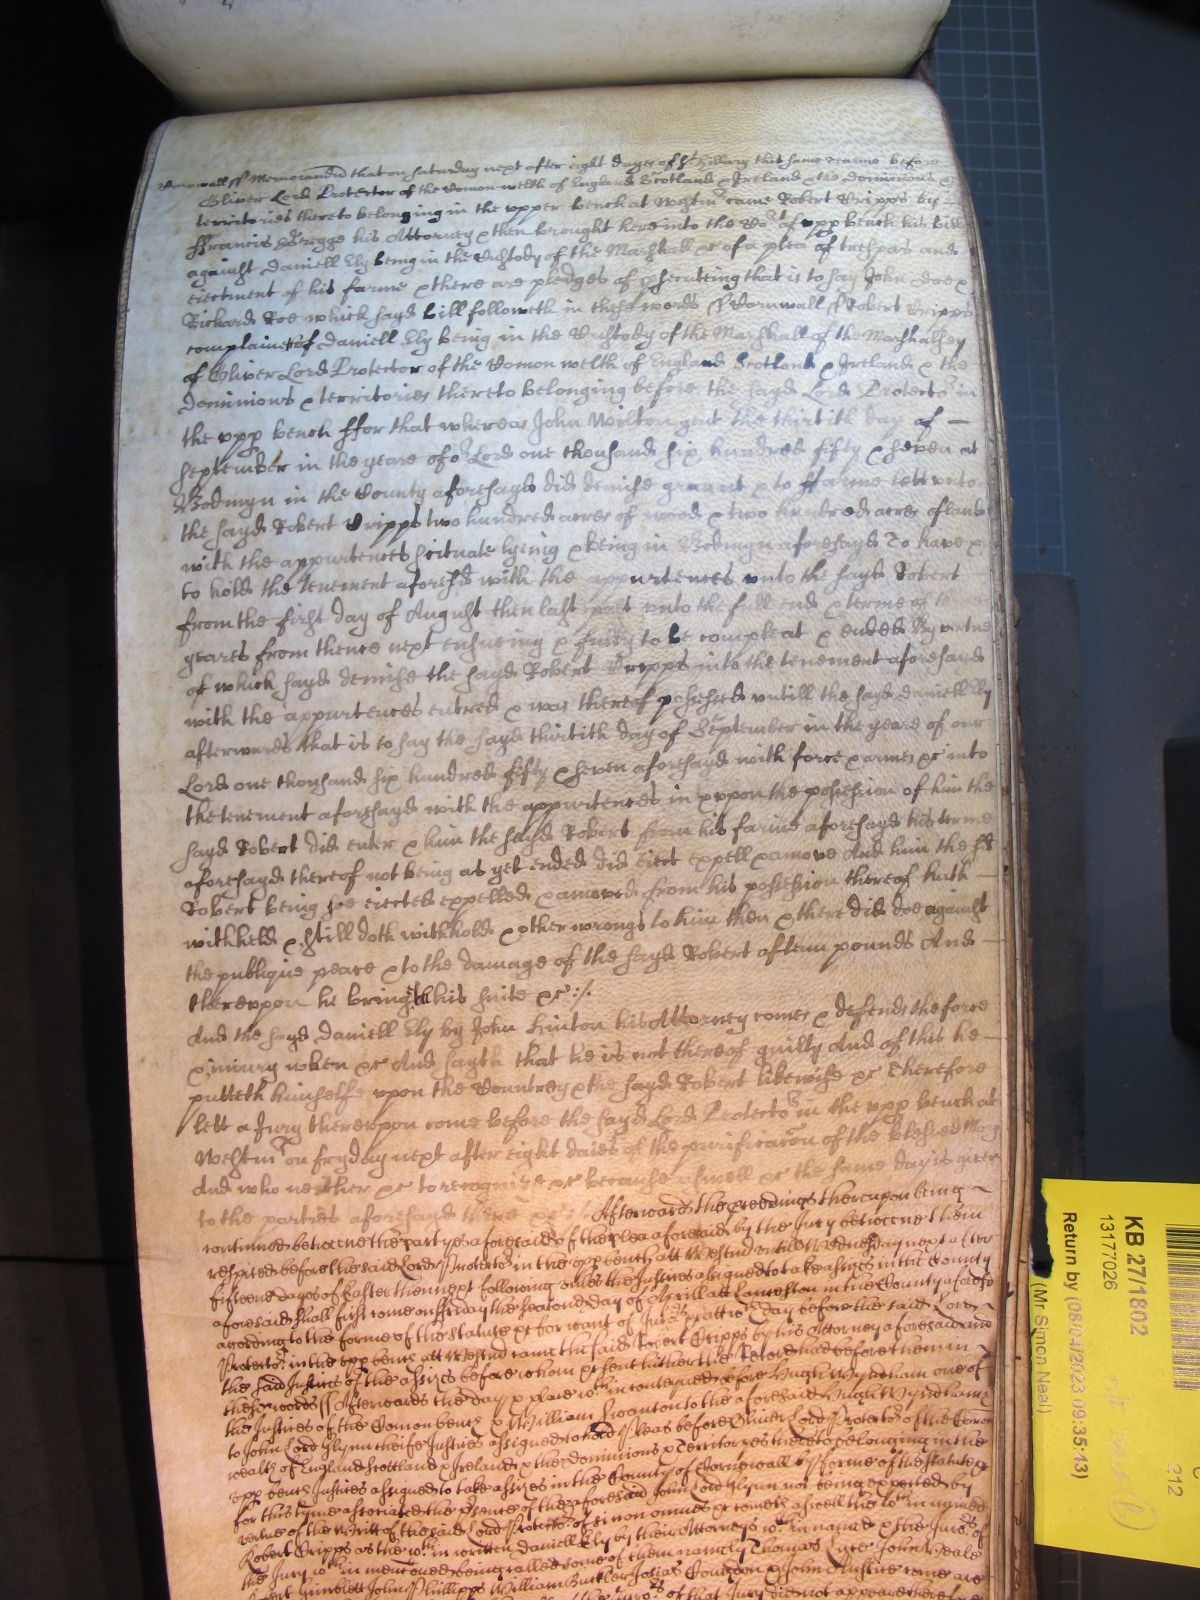 Cornwall ss Memorand that on Saturday next after eight dayes of St Hillary this same tearme before
Oliver Lord Protector of the Comon welth of England Scotland & Ireland & the dominions &
territories thereto belonging in the upper bench at Westm came Robert Cripps by
ffrancis Brigge his Attorney & then brought here into the Cot of upp bench his bill
against Daniell Ely being in the Custody of the Marshall &c of a plea of trespas and
eiectment of his farme & there are pledges of psecuteing that is to say John Doe &
Richard Roe which sayd bill followeth in these words ss Cornwall ss Robert Cripps
complaineth of Daniell Ely being in the Custody of the Marshall of the Marshalsey
of Oliver Lord Protector of the Comon welth of England Scotland & Ireland & the
dominions & territories thereto belonging before the sayd Lord Protector in
the upp bench ffor that whereas John Wilton gent the thirtith day of
September in the yeare of or Lord one thousand six hundred fifty & seven at
Bodmyn in the County aforesayd did demise graunt & to ffarme lett unto
the sayd Robert Cripps two hundred acres of wood & two hundred acres of land
with the appurtences scituate lyeing & being in Bodmyn aforesayd To have &
to hold the tenement aforesd with the appurtences unto the sayd Robert
from the first day of August then last past unto the full end & terme of
yeares from thence next ensueing & fully to be compleat & ended By virtue
of which sayd demise the sayd Robert Cripps into the tenement aforesayd
with the appurtences entred & was thereof possessed untill the sayd Daniell Ely
afterwards that is to say the sayd thirtith day of September in the yeare of our
Lord one thousand six hundred fifty & seven aforesayd with force & armes &c into
the tenement aforesayd with the appurtences in & upon the possession of him the
sayd Robert did enter & him the sayd Robert from his farme aforesayd his terme
aforesayd thereof not being as yet ended did eiect expell & amove And him the sd
Robert being soe eiected expelled & amoved from his possession thereof hath
withheld & still doth withhold & other wrongs to him then & there did doe against
the publique peace & to the damage of the sayd Robert of tenn pounds And
thereupon he bringeth his suite &c
And the sayd Daniell Ely by John Linton his Attorney comes & defends the force
& iniury when &c And sayth that he is not thereof guilty And of this he
putteth himselfe upon the Countrey & the sayd Robert likewise &c Therefore
lett a Jury thereupon come before the sayd Lord Protector in the upp bench at
Westm on fryday next after eight daies of the purificacon of the blessed Mary
And who neither &c to recognize &c because aswell &c the same day is given
to the parties aforesayd there &c Afterwards the pceedings thereupon being
continued betweene the partyes aforesaid of the plea aforesaid by the Jury betweene them
respited before the said Lord Protector in the upp bench att Westm untill Wednesday next after
fifteene dayes of Easter then next following unles the Justices assigned to take assizes in the County
aforesaid shall first come on ffriday the second day of Aprill att Lanceston in the County aforesd
according to the forme of the Statute &c for want of Jurors &c att wch day before the said Lord
Protector in the upp bench att Westm came the said Robert Cripps by his Attorney aforesaid and
the said Justices of the assizes before whom &c sent hither their Record had before them in
these words ss Afterwards the day & place wthin conteyned before Hugh Wyndham one of
the Justices of the Comon bench & William Swanton to the aforesaid Hugh Wyndham &
to John Lord Glynn cheife Justice assigned to hold Pleas before Oliver Lord Protector of the Comon
wealth of England Scottland & Ireland & the dominions & Territoryes thereto belonging in the
upp bench Justices assigned to take assizes in the County of Cornewall by forme of the statute &c
for this tyme associated the psence of the aforesaid John Lord Glynn not being expected by
vertue of the Writt of the said Lord Protector of si non omnes &c cometh aswell the wthin named
Robert Cripps as the wthin written Daniell Ely by their Attorneys wthin named & the Jurors of
the Jury wthin mencoed being called some of them namely Thomas Luce John Neale
Gimblett John Phillipps William Buttler Josias Congdon & John Austine come and
of that Jury did not appeare therefore
KB 27/1802
13177026
Return by (08/04/2023 09:35:43)
(Mr Simon Neal)
C
212